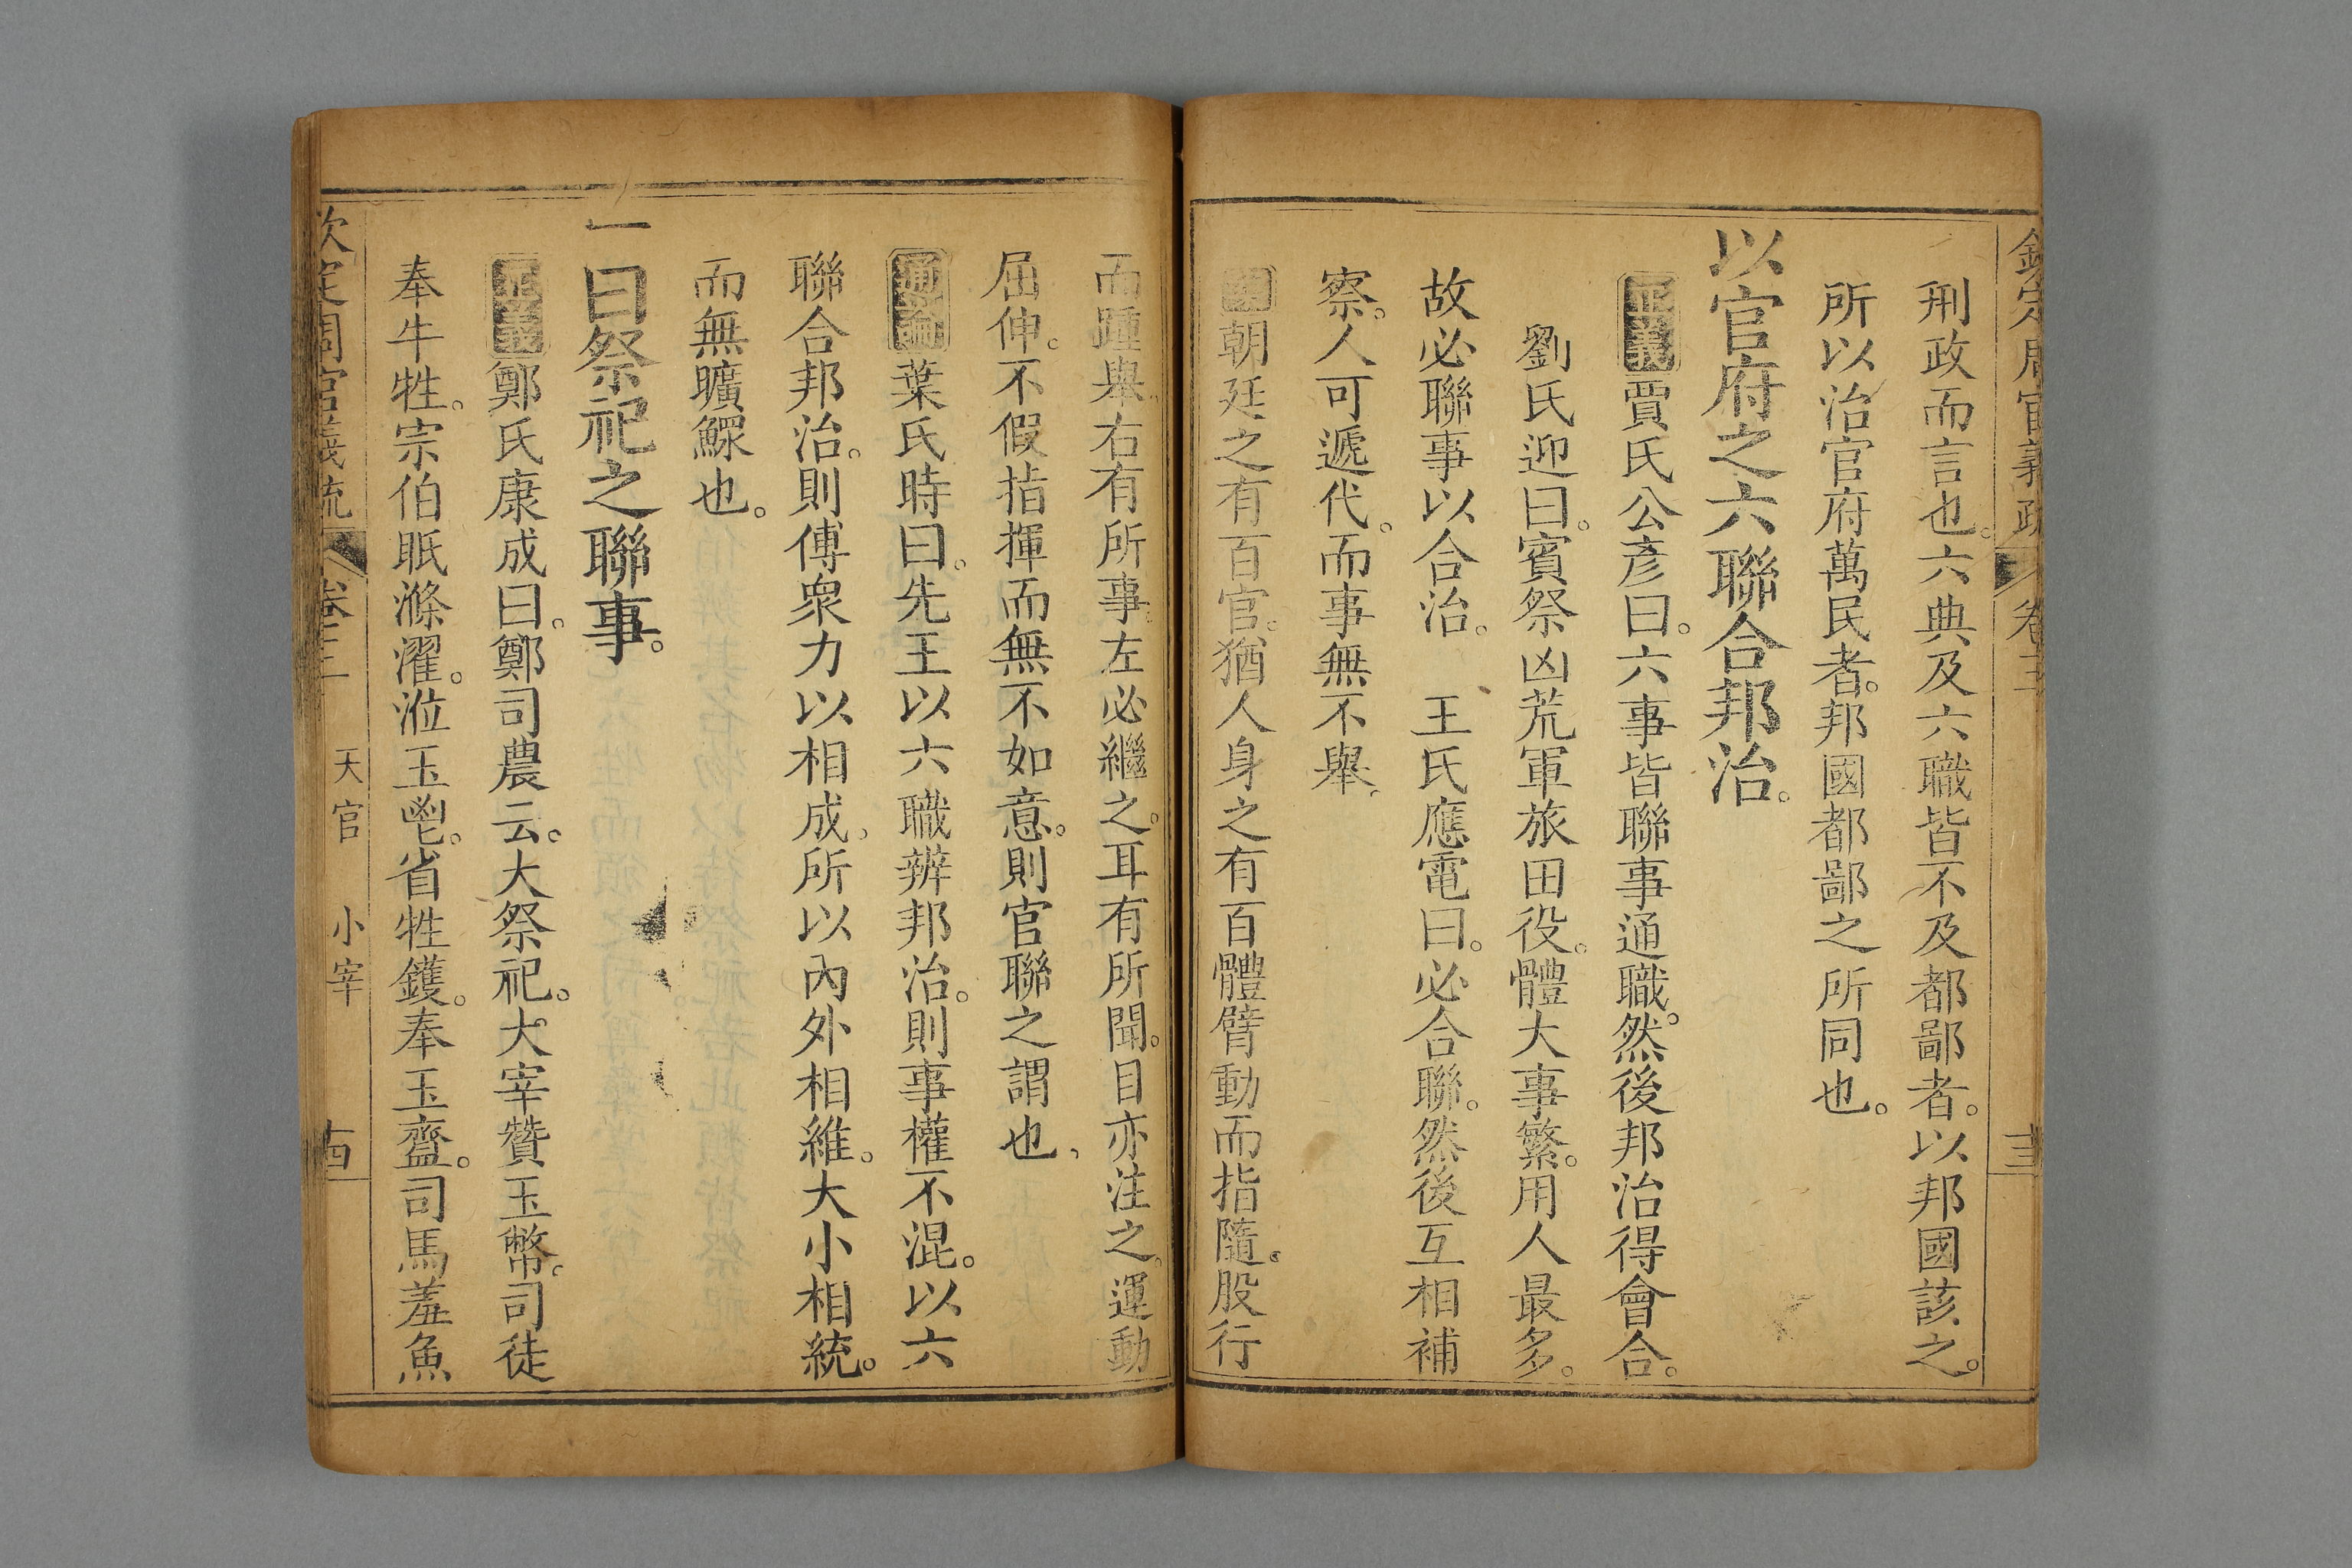 欽定周官義疏 卷三 十三
刑政而言也。六典及六職皆不及都鄙者。以邦國該之。
所以治官府萬民者。邦國都鄙之所同也。
以官府之六聯合邦治。
正義賈氏公彥曰。六事皆聯事通職。然後邦治得會合。
劉氏迎曰。賓祭凶荒軍旅田役。體大事繁。用人最多。
故必聯事以合治。 王氏應電曰。必合聯。然後互相補
察。人可遞代。而事無不舉。
朝廷之有百官。猶人身之有百體臂動而指隨。股行
而踵舉右有所事。左必繼之。耳有所聞。目亦注之。運動
屈伸。不假指揮而無不如意。則官聯之謂也、
通論葉氏時曰。先王以六職辨邦治。則事權不混。以六
聯合邦治。則傅衆力以相成。所以內外相維。大小相統。
而無曠鰥也。
一曰祭祀之聯事。
正義鄭氏康成曰。鄭司農云。大祭祀。大宰贊玉幣。司徒
奉牛牲。宗伯眂滌濯。涖玉鬯。省牲鑊。奉玉齍。司馬羞魚
欽定周官義疏 卷三 天官 小宰 十四